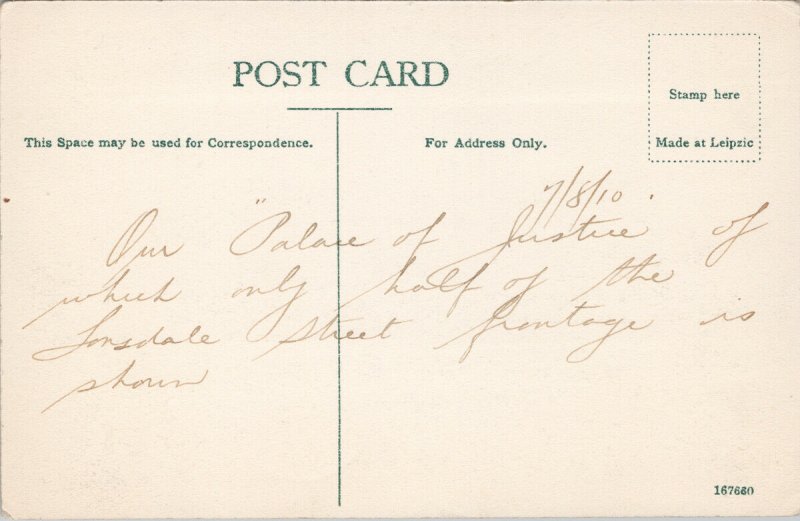 POST CARD
Stamp here
Made at Leipzic
This Space may be used for Correspondence.
For Address Only.
7/8/10.
Our "Palace of Justice of
which only half of the
Lonsdale Street frontage is
shown
167660